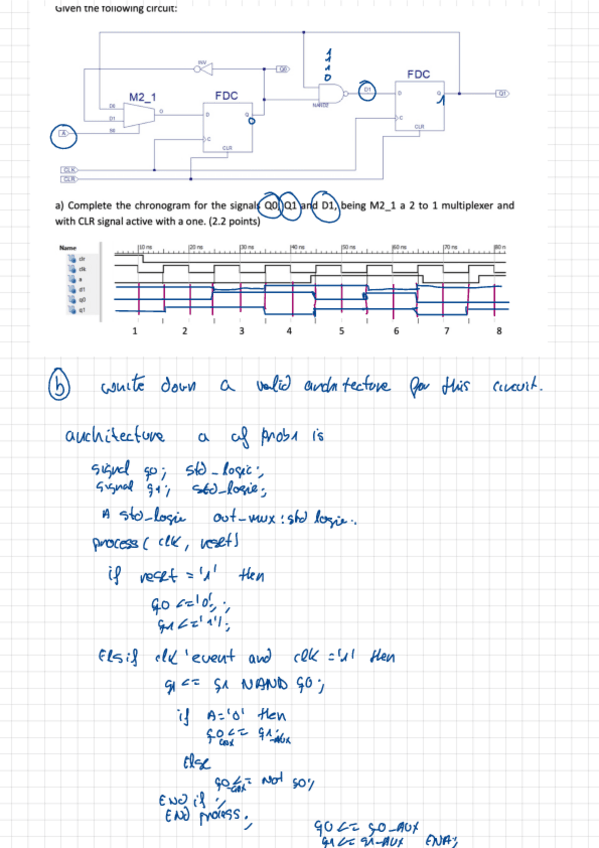 Given the following circuit:
INV
Q0
1
1
1
0
FDC
M2_1
FDC
D1
NAND2
D
Q
1
Q1
D0
D1
S0
O
D
Q
0
C
A
C
CLR
CLR
CLK
CLR
a) Complete the chronogram for the signals Q0, Q1 and D1, being M2_1 a 2 to 1 multiplexer and
with CLR signal active with a one. (2.2 points)
Name
10 ns 20 ns 30 ns 40 ns 50 ns 60 ns 70 ns 80 n
clr
clk
a
d1
q0
q1
1 2 3 4 5 6 7 8
b write down a valid architecture for this circuit.
architecture a of prob1 is
signal q0; std_logic;
signal q1; std_logic;
A std_logic out_mux: std logic.
process( clk, reset)
if reset = '1' then
q0 <= '0';
q1 <= '1';
Elsif clk'event and clk ='1' then
q1 <= q1 NAND q0;
if A='0' then
q0 <= q1_aux
Else
q0 <= Not q0;
END if;
END process;
q0 <= q0_AUX
q1 <= q1_AUX END;